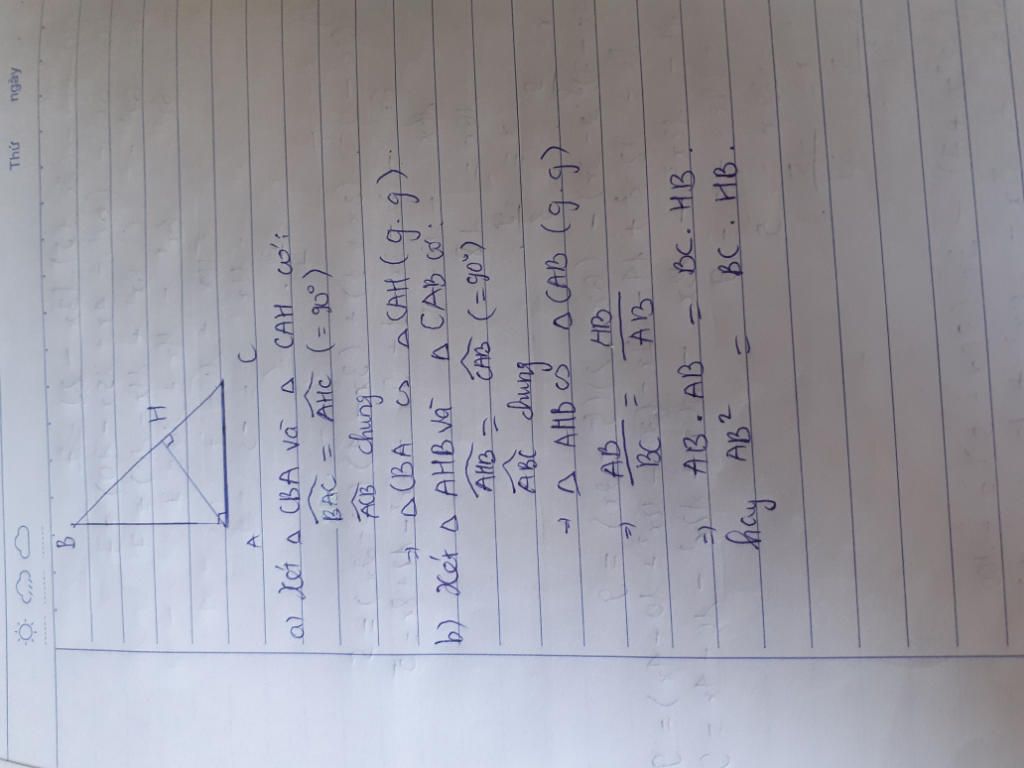 Thứ ngày
B
H
A C
a) Xét Δ CBA và Δ CAH có:
BAC = AHC (= 90°)
ACB chung
⇒ Δ CBA ∽ Δ CAH (g.g)
b) Xét Δ AHB và Δ CAB có:
AHB = CAB (= 90°)
ABC chung
→ Δ AHB ∽ Δ CAB (g.g)
⇒ AB/BC = HB/AB
⇒ AB . AB = BC . HB.
hay AB² = BC . HB.